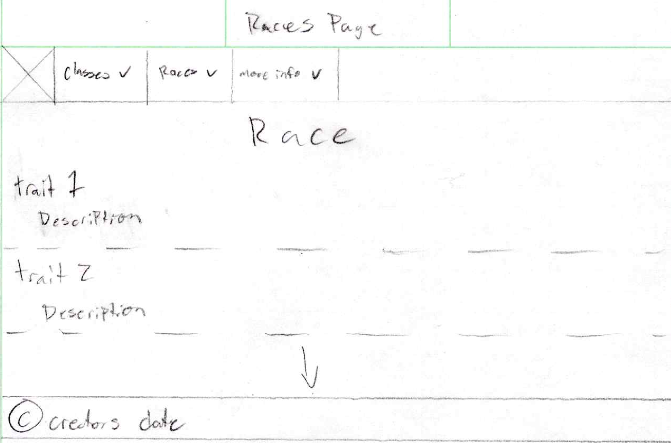 Races Page
Classes v Races v more info v
Race
trait 1
Description
trait 2
Description
© creators date